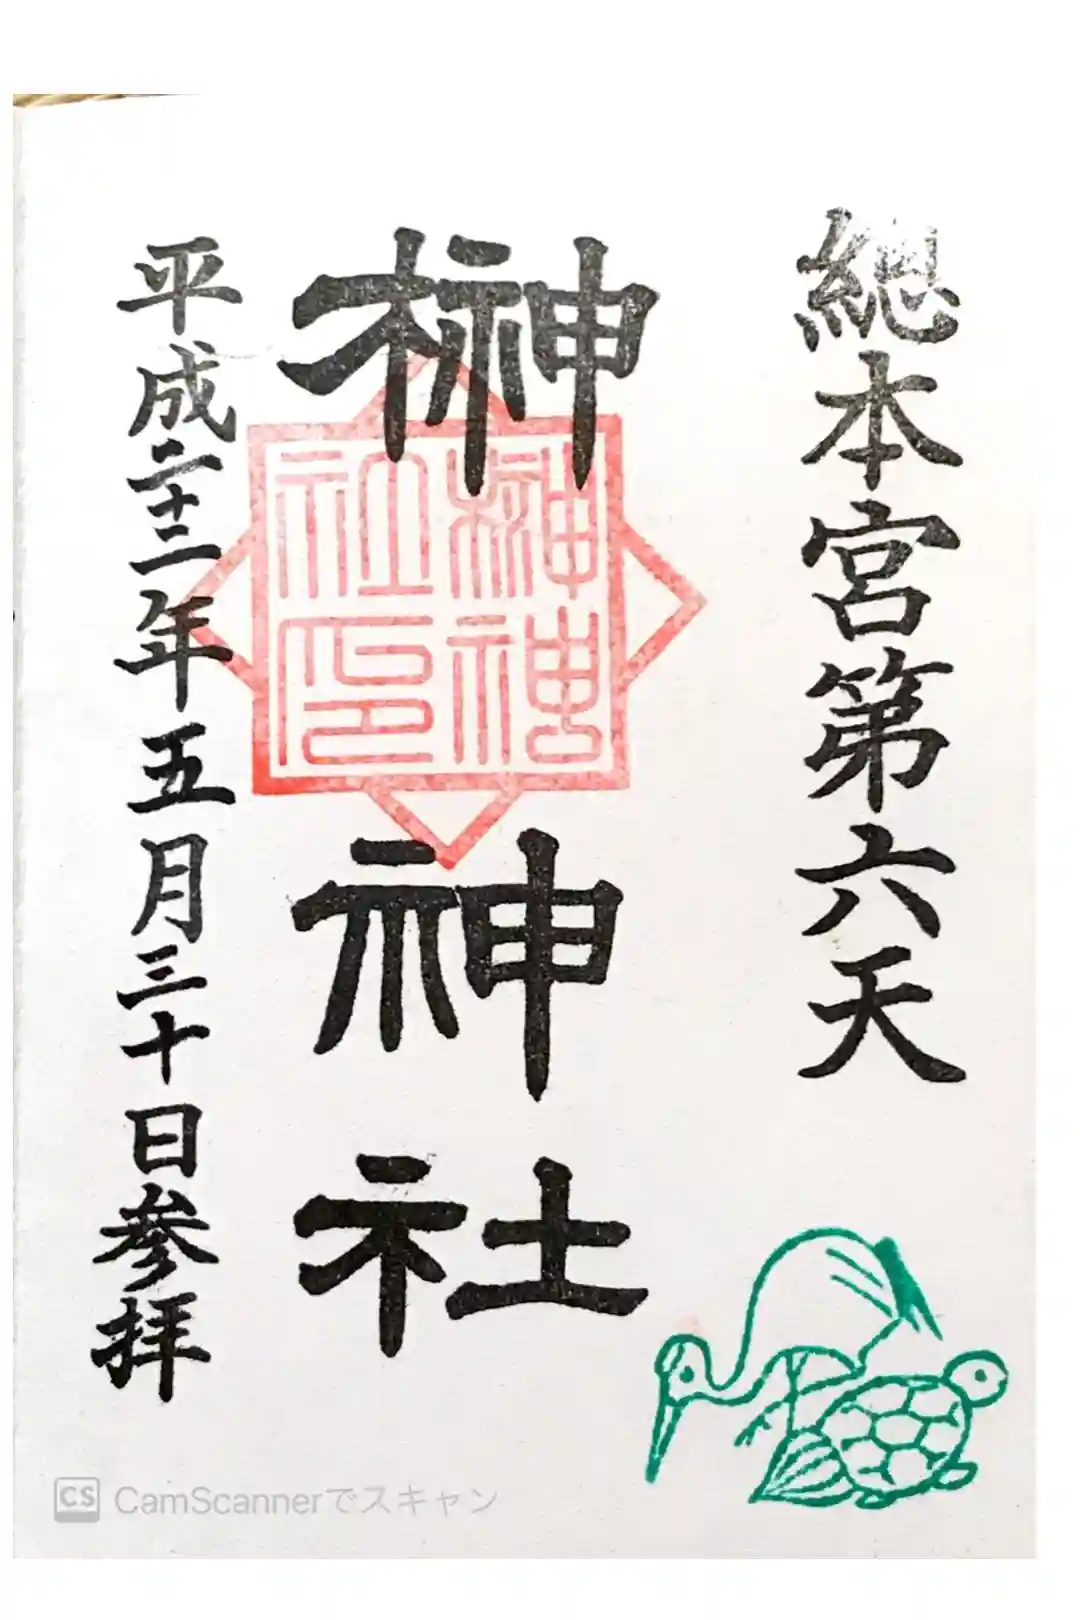 總本宮第六天
榊神社
榊神
社印
平成二十三年五月三十日参拝
CS CamScannerでスキャン